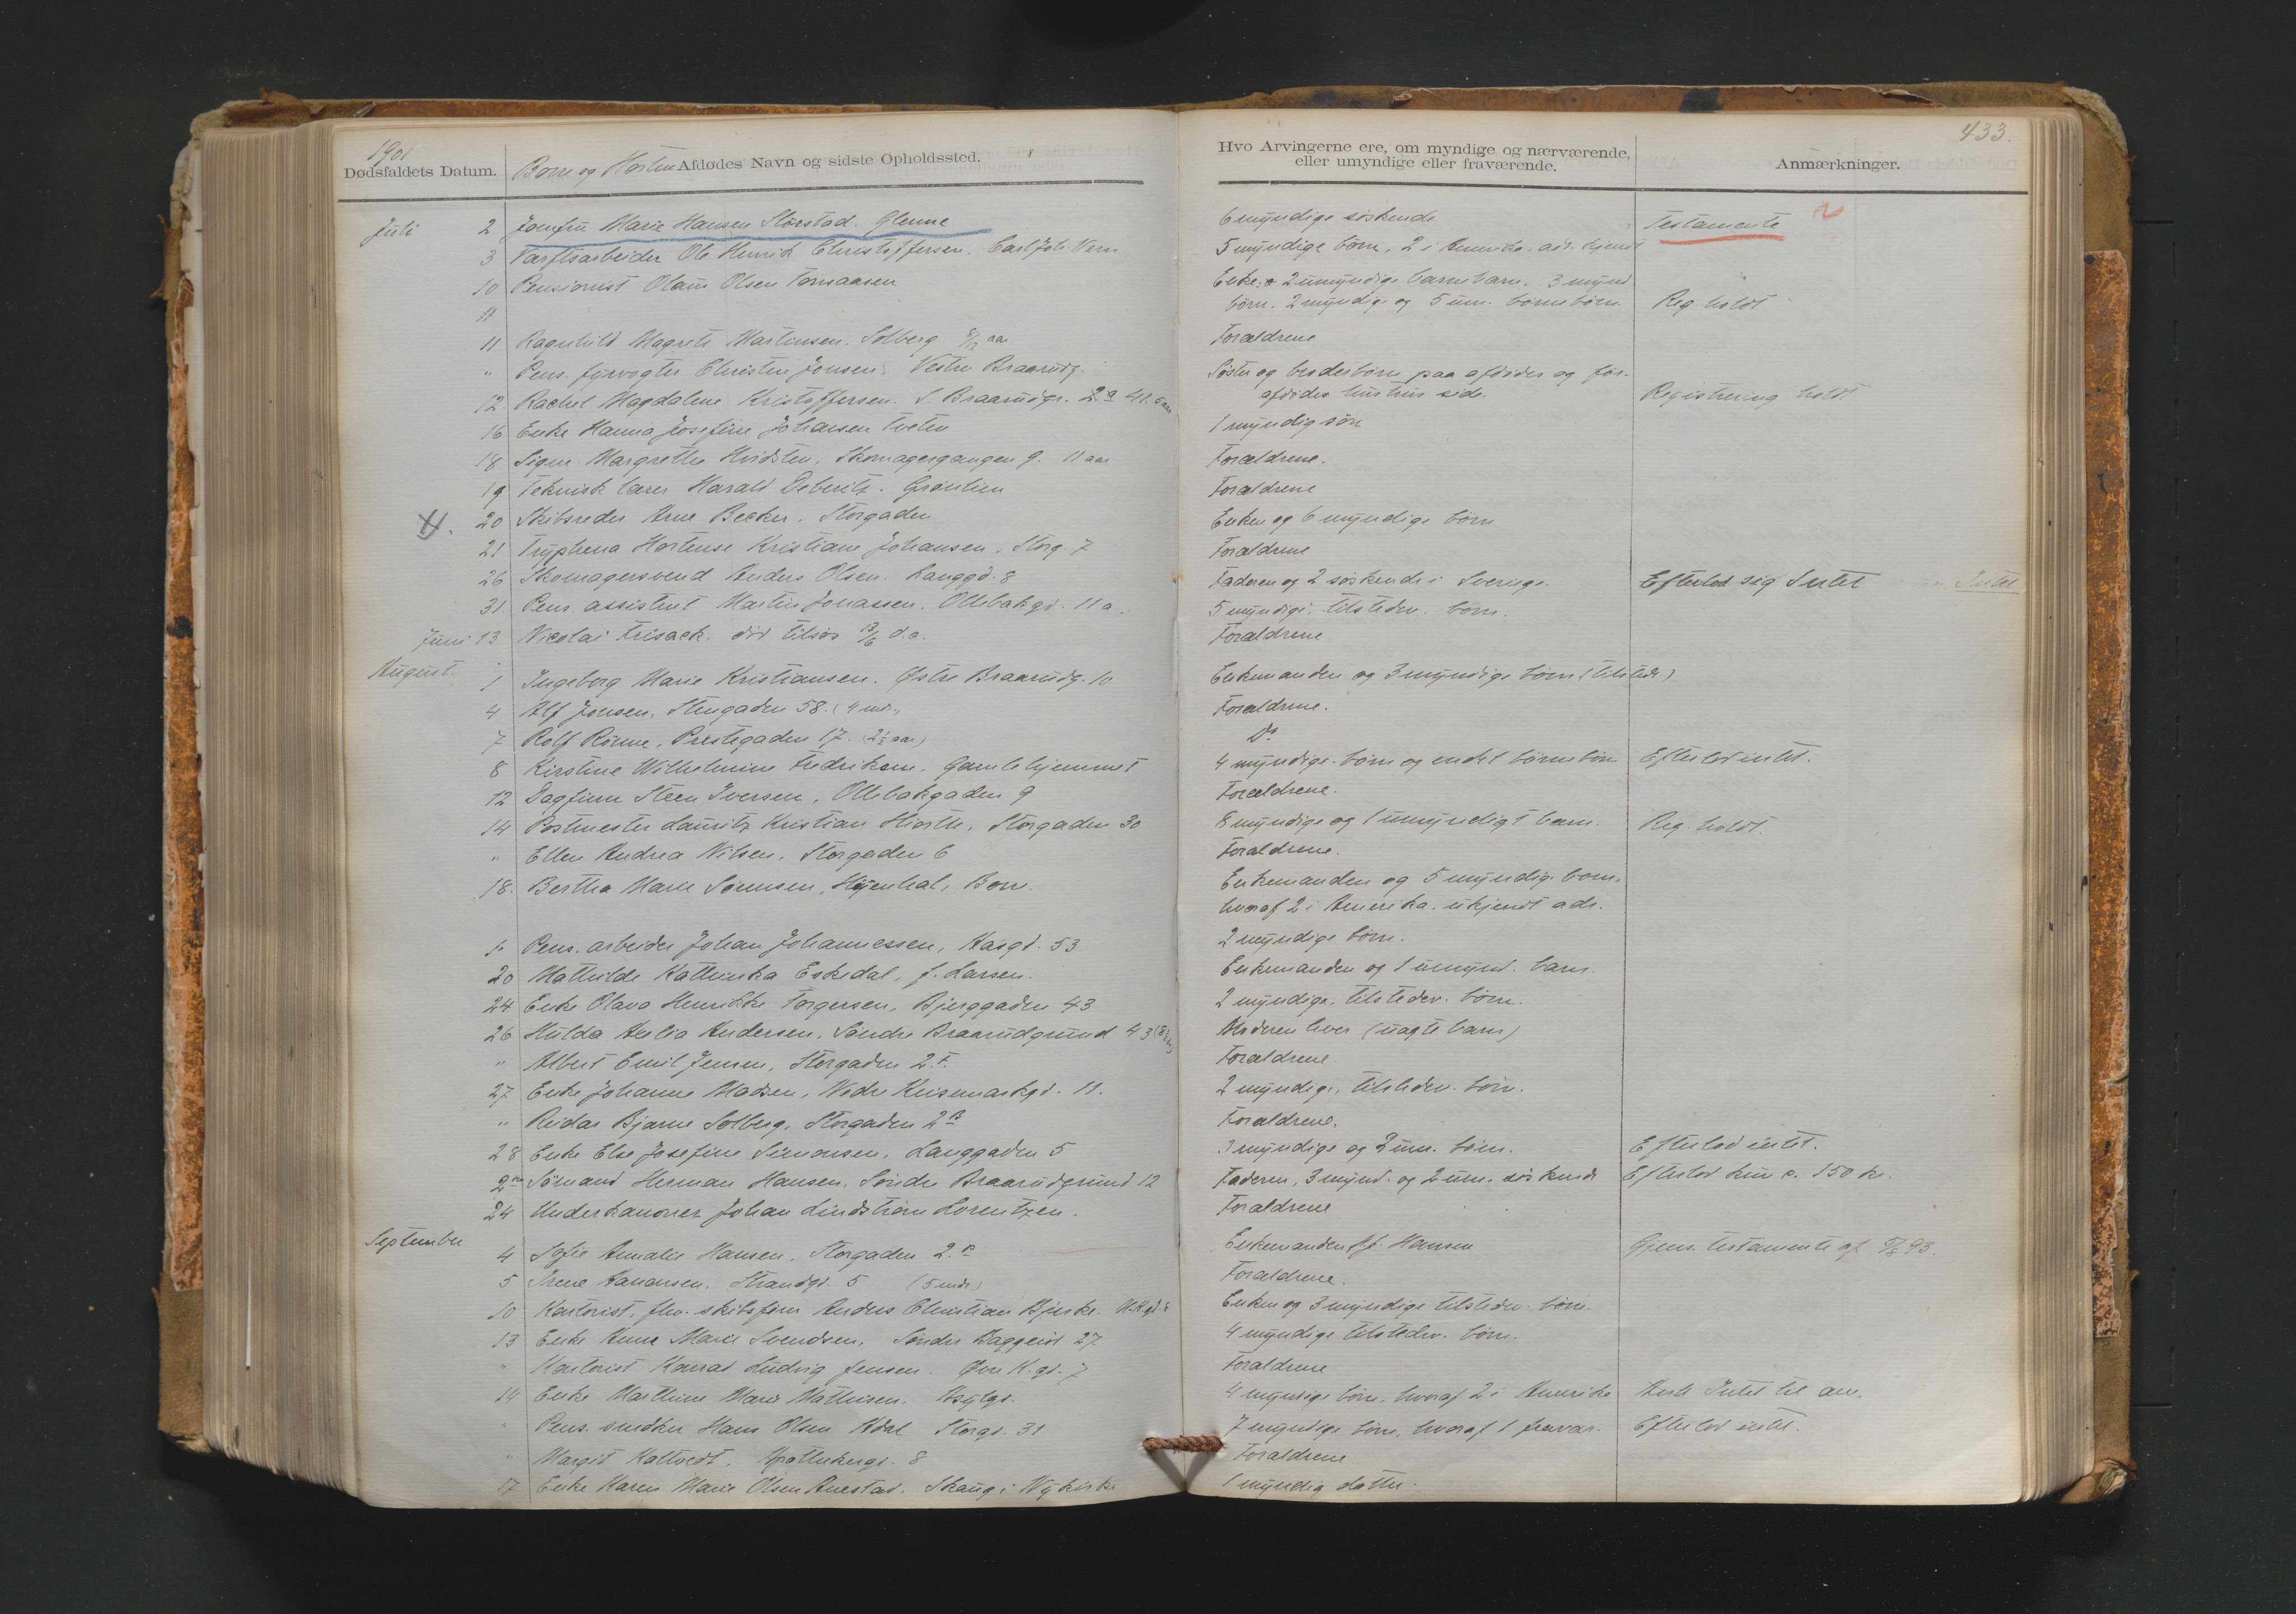 1901
433.
Dødsfaldets Datum.
Borre og Horten Afdødes Navn og sidste Opholdssted.
Hvo Arvingerne ere, om myndige og nærværende, eller umyndige eller fraværende.
Anmærkninger.
Juli 2 Jomfru Marie Hansen Glenne 6 myndige søskende Testamente
3 Værftsarbeider Ole Henrik Christoffersen. Carl Joh. Vern 5 myndige børn, 2 i
10 Pensionist Olaus Olsen Enke 2 umyndige barnebarn, 3 mynd
børn. 2 myndige og 5 um. børnebørn. Reg. holdt
11
11 Ragnhild Magrete Martinsen. Solberg 8/12 aar Forældrene
" Pens. fyrvogter Christen Jonsen. Vestre Braarudg. Søster og broderbørn paa afdødes og for-
afdødes hustrus side. Registrering holdt
12 Rachel Magdalene Kristoffersen. S. Braarudgr.
16 Enke Hanna Josefine Johansen Tveten 1 myndig søn
18 Signe Margrethe Hvidsten. Skomagergangen 9. 11 aar Forældrene.
19 Teknisk lærer Harald Deberitz. Grønlien Forældrene
20 Skibsreder Arne Becker. Storgaden Enken og 6 myndige børn
21 Tryphena Hortense Kristiane Johansen, Storg. 7 Forældrene
26 Skomagersvend Anders Olsen. Langgd. 8 Faderen og 2 søskende i Sverige. Efterlod sig Intet Intet
31. Pens. assistent Martin Jonassen. Ollebakgd. 11 a. 5 myndige, tilstedev. børn.
Juni 13 Nicolai Frisack. død tilsøs 13/6 d.a. Forældrene
August. 1 Ingeborg Marie Kristiansen. Østre Braarudg. 10 Enkemanden og 3 myndige børn (tilstede)
4 Alf Jonsen. Stengaden 58. (4 mdr.) Forældrene.
7 Rolf Rønne, Prestegaden 17. (2½ aar) Do
8 Kirstine Wilhelmine Fredriksen. Gamlehjemmet 4 myndige børn og endel børnebørn Efterlod intet.
12 Dagfinn Steen Iversen, Ollebakgaden 9 Forældrene.
14 Postmester Lauritz Kristian Hiorth. Storgaden 30 8 myndige og 1 umyndigt barn. Reg. holdt.
" Ellen Andrea Nilsen. Storgaden 6 Forældrene.
18. Bertha Marie Sørensen, Borre. Enkemanden og 5 myndige børn,
hvoraf 2 i Amerika. ukjendt adr.
1. Pens. arbeider Johan Johannessen, Hasgd. 53 2 myndige børn.
20 Mathilde Kathinka Eskedal, f. Larsen. Enkemanden og 1 umynd. barn.
24 Enke Olava Henrikke Torgersen, Bjerggaden 43 2 myndige, tilstedev. børn.
26 Hulda Andersen. Søndre Braarudgrund 43 Moderen lever (uægte barn)
" Albert Emil Jensen, Storgaden 2 Forældrene
27 Enke Johanne Madsen, Nedre Keisemarkgd. 11. 2 myndige, tilstedev. børn.
" Reidar Bjarne Solberg. Storgaden 2 B Forældrene.
28 Enke Else Josefine Simonsen. Langgaden 5 3 myndige og 3 um. børn. Efterlod intet.
Sømand Herman Hansen. Søndre Braarudgrund 12 Faderen, 3 mynd. og 2 um. søskende Efterlod kun c. 150 kr.
24 Underkanoner Johan Lindstrøm Lorentzen. Forældrene
September 4 Sofie Amalie Hansen. Storgaden 2. Enkemanden Hansen Gjens. testamente af 93.
5 Irene Hanansen. Strandgd. 5 (5 mdr.) Forældrene.
10 Kontorist, fhv. skibsfører Anders Christian Bjerke. Enken og 3 myndige tilstedev. børn.
13 Enke Anne Marie Svendsen. Søndre 27 4 myndige tilstedev. børn.
" Kontorist Konrad Ludvig Jensen. Øvre K. gd. 7 Forældrene
14 Enke Marthine Marie Mathisen. 4 myndige børn, hvoraf 2 i Amerika Intet til arv.
" Pens. snedker Hans Olsen Adal Storgd. 31 7 myndige børn, hvoraf 1 fravær. Efterlod intet.
" Margit Kaltvedt. Apothekergd. 8 Forældrene
17 Enke Karen Marie Olsen Skaug i Nykirke 1 myndig datter.